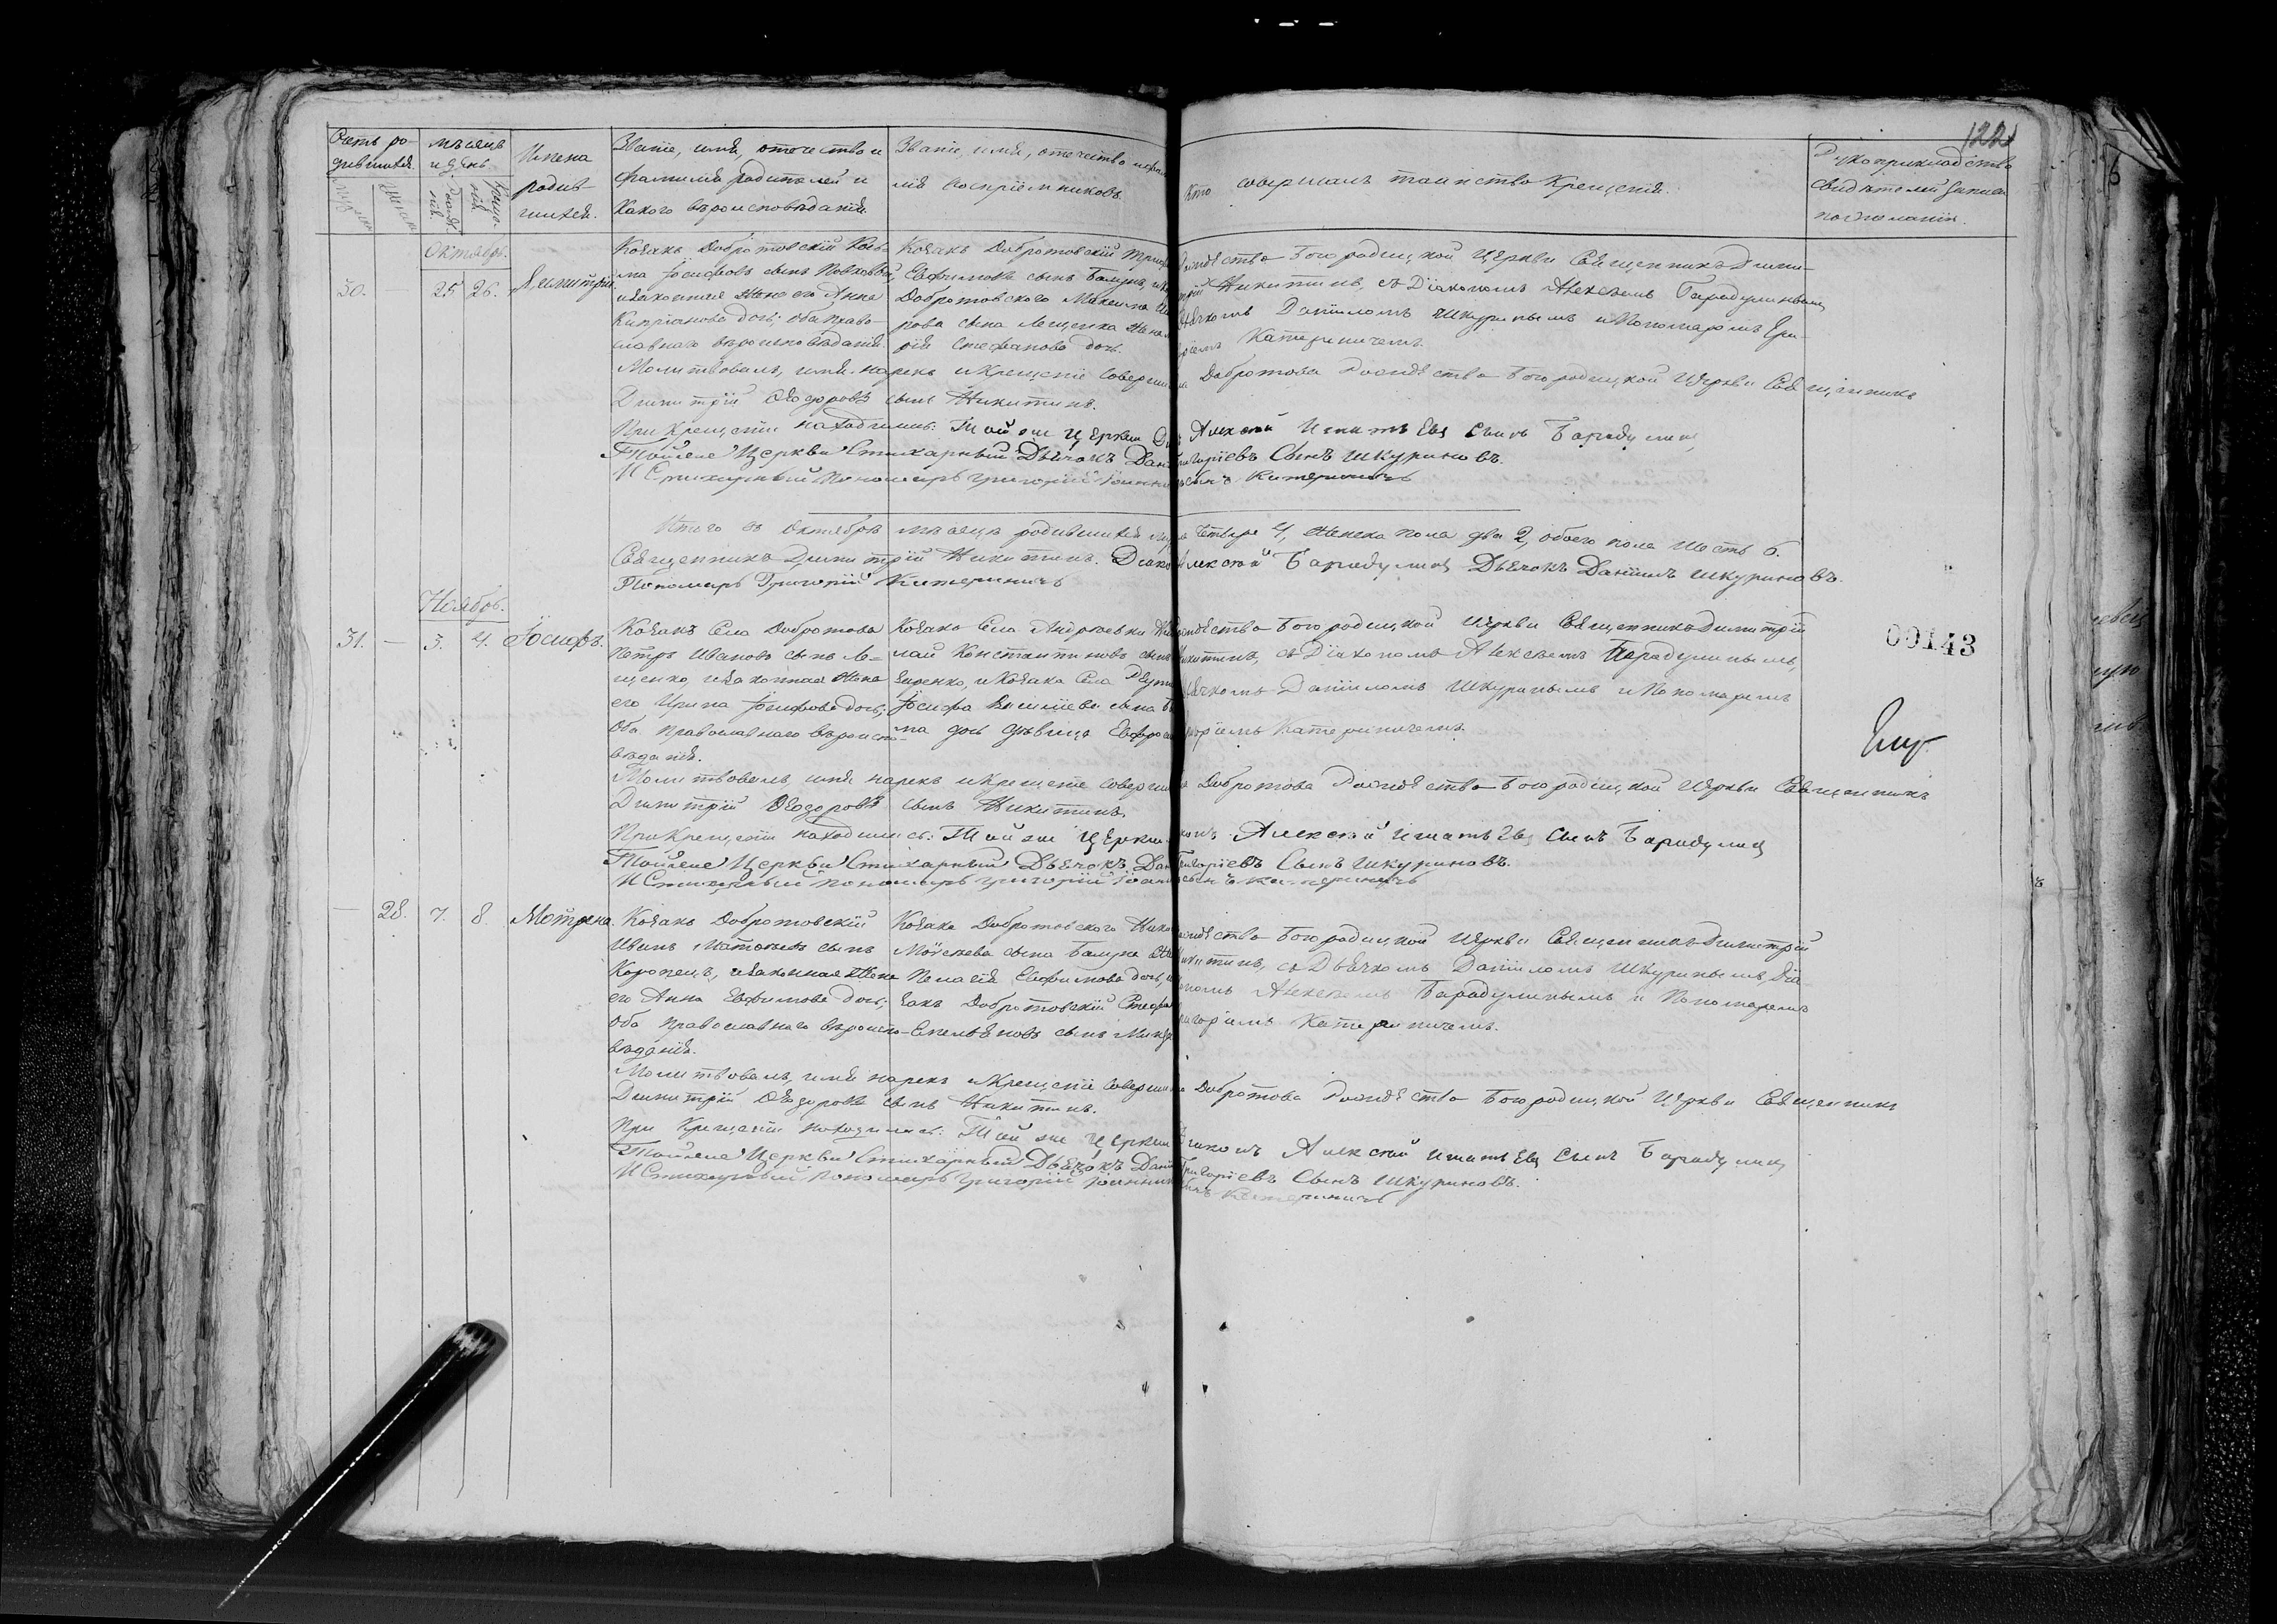 122
Счетъ ро-
дившихся.
мѣсяцъ
и день
Имена
родив-
шихся.
Званіе, имя, отечество и
фамилія родителей и
какого вѣроисповѣданія.
Званіе, имя, отечество и фами
лія воспріемниковъ.
Кто совершалъ таинство Крещенія.
Рукоприкладство
свидѣтелей записи
по желанію.
Октябрь.
30.
25
26.
Димитрій
Козакъ Добротовскій Козь-
ма Іосифовъ сынъ
и законная жена его Анна
Кипріанова дочь; оба право-
славнаго вѣроисповѣданія.
Козакъ Добротовскій
Евфимовъ сынъ Балунъ,
Добротовского Максима
рова сына Лещенка жена
рія Стефанова дочь.
Рождество Богородицкой Церкви Священникъ Дими-
трій Никитинъ, съ Діакономъ Алексѣемъ Барадулинымъ,
Дьячкомъ Даніиломъ Шкуринымъ и Пономаремъ Гри-
горіемъ Катериничемъ.
Молитвовалъ, имя нарекъ и крещеніе совершилъ
Добротова Рождество Богородицкой Церкви Священникъ
Димитрій Ѳеодоровъ сынъ Никитинъ.
При крещеніи находились: Той же Церкви
Алексѣй Игнатьевъ сынъ Барадулинъ
Тойже Церкви Стихарный Дьячокъ Даніилъ
Григоріевъ Сынъ Шкуриновъ.
И Стихарный Пономарь Григорій Іоанновъ
сынъ Катериничъ
Итого въ Октябрѣ мѣсяцѣ родившихся муж
четыре 4, женска пола два 2, обоего пола шесть 6.
Священникъ Димитрій Никитинъ. Діаконъ
Алексѣй Барадулинъ Дьячокъ Даніилъ Шкуриновъ.
Пономарь Григорій Катериничъ
Ноябрь.
31.
—
3.
4.
Іосифъ.
Козакъ Села Добротова
Петръ Ивановъ сынъ Ле-
щенко, и законная жена
его Ирина Іосифова дочь;
Оба православнаго вѣроиспо-
вѣданія.
Козакъ Села Андреевки Ни
лай Константиновъ сынъ
Козака Села
Іосифа Василіева сына
на дочь дѣвица Евфро
Рождество Богородицкой Церкви Священникъ Димитрій
Никитинъ, съ Діакономъ Алексѣемъ Барадулинымъ,
Дьячкомъ Даніиломъ Шкуринымъ и Пономаремъ
Григоріемъ Катериничемъ.
00143
Молитвовалъ, имя нарекъ и крещеніе совершилъ
Добротова Рождество Богородицкой Церкви Священникъ
Димитрій Ѳеодоровъ сынъ Никитинъ.
При крещеніи находились: Той же Церкви
Алексѣй Игнатьевъ сынъ Барадулинъ
Тойже Церкви Стихарный Дьячокъ Даніилъ
Григоріевъ Сынъ Шкуриновъ.
И Стихарный Пономарь Григорій Іоанновъ
сынъ Катериничъ
—
28.
7.
8.
Мотрона.
Козакъ Добротовскій
Иванъ сынъ
Коропецъ, и законная жена
его Анна Евфимова дочь;
Оба православнаго вѣроиспо-
вѣданія.
Козака Добротовского
Моисеева сына Балуна
Пелагія Евфимова дочь,
закъ Добротовскій Стефанъ
Емельяновъ сынъ
Рождество Богородицкой Церкви Священникъ Димитрій
Никитинъ, съ Дьячкомъ Даніиломъ Шкуринымъ, Діа-
кономъ Алексѣемъ Барадулинымъ и Пономаремъ
Григоріемъ Катериничемъ.
Молитвовалъ, имя нарекъ и крещеніе совершилъ
Добротова Рождество Богородицкой Церкви Священникъ
Димитрій Ѳеодоровъ сынъ Никитинъ.
При крещеніи находились: Той же Церкви
Алексѣй Игнатьевъ сынъ Барадулинъ
Тойже Церкви Стихарный Дьячокъ Даніилъ
Григоріевъ Сынъ Шкуриновъ.
И Стихарный Пономарь Григорій Іоанновъ
сынъ Катериничъ